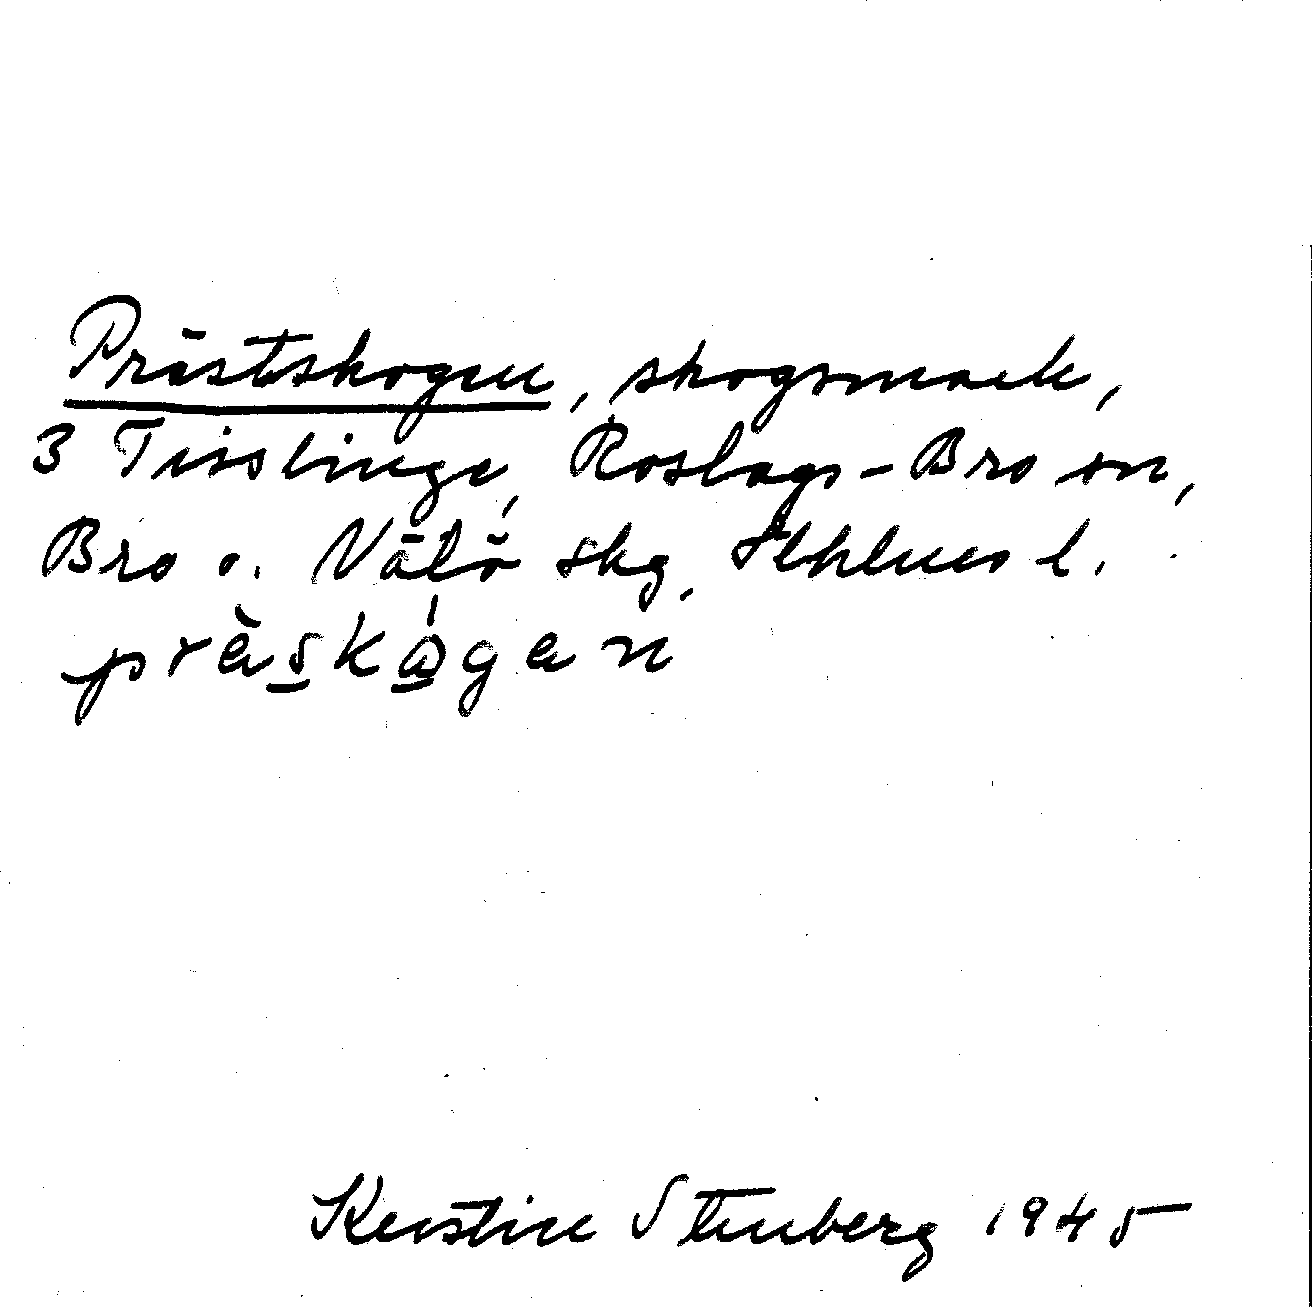 Prästskogen, skogsmark,
3 Tisslinge, Roslags-Bro sn,
Bro o. Vätö skg, Sthlms l.
präskógan
Kerstin Stenberg 1945